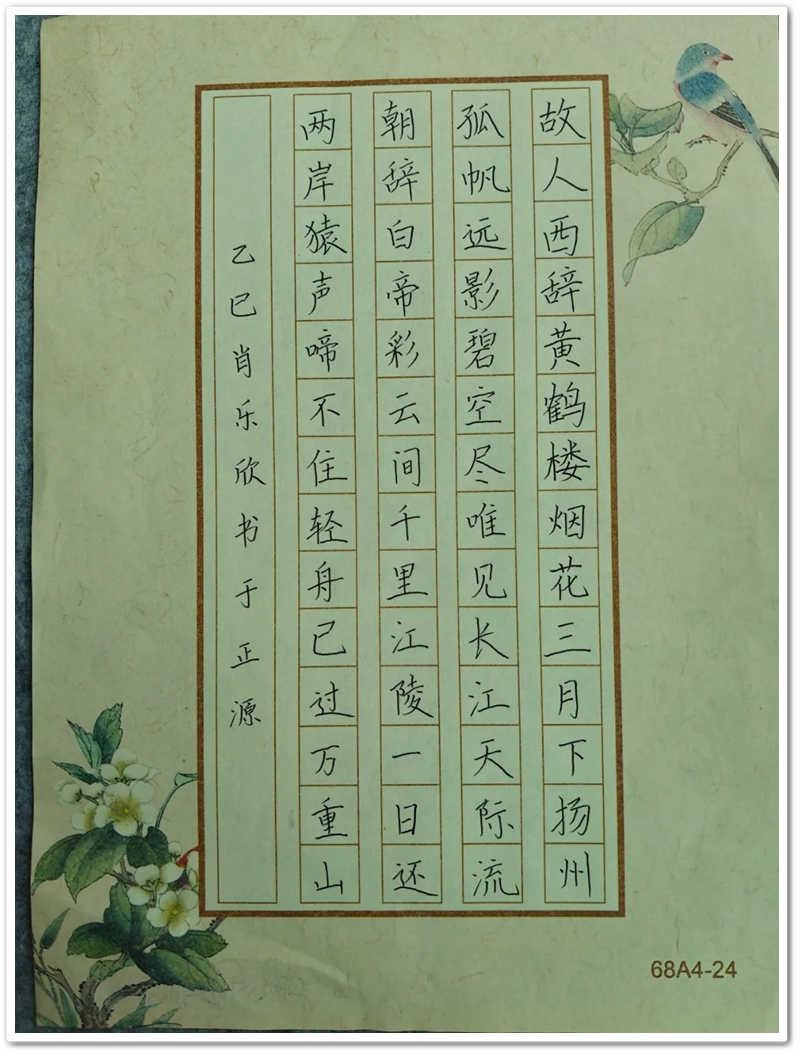 故人西辞黄鹤楼烟花三月下扬州
孤帆远影碧空尽唯见长江天际流
朝辞白帝彩云间千里江陵一日还
两岸猿声啼不住轻舟已过万重山
乙巳肖乐欣书于正源
68A4-24